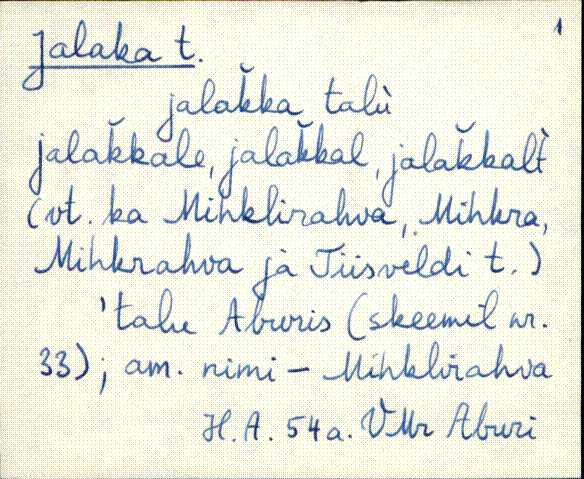 1
Jalaka t.
jalak̆ka talù
jalak̆kale, jalak̆kal, jalak̆kalt̀
(vt. ka Mihklirahva, Mihkra,
Mihkrahva ja Tiisveldi t.)
'talu Aburis (skeemil nr.
33); am. nimi – Mihklirahva
H.A. 54a. VMr Aburi